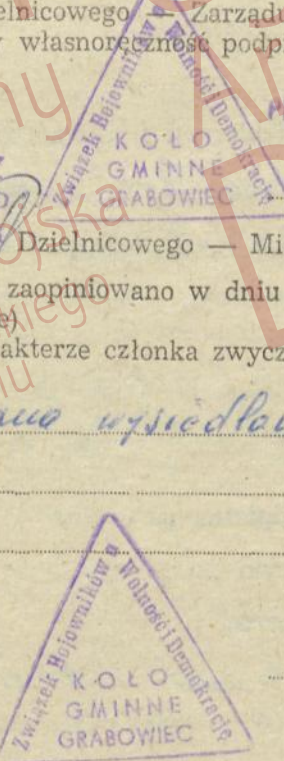 elnicowego — Zarządu
własnoręczność podp
Związek Bojowników o Wolność i Demokrację
KOŁO
GMINNE
GRABOWIEC
Dzielnicowego — Mi
zaopiniowano w dniu
e)
akterze członka zwycz
wysiedla
Związek Bojowników o Wolność i Demokrację
KOŁO
GMINNE
GRABOWIEC